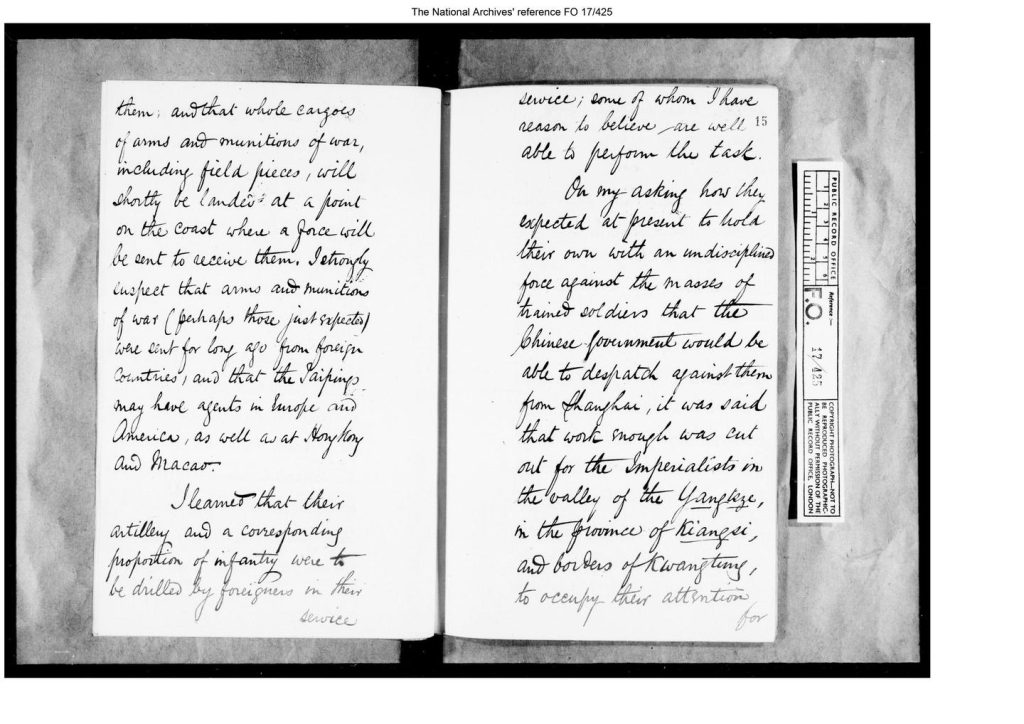 The National Archives' reference FO 17/425
them; and that whole cargoes
of arms and munitions of war,
including field pieces, will
shortly be landed at a point
on the coast where a force will
be sent to receive them. I strongly
suspect that arms and munitions
of war (perhaps those just expected)
were sent for long ago from foreign
countries, and that the Taipings
may have agents in Europe and
America, as well as at Hong Kong
and Macao.
I learned that their
artillery and a corresponding
proportion of infantry were to
be drilled by foreigners in their
service
15
service; some of whom I have
reason to believe are well
able to perform the task.
On my asking how they
expected at present to hold
their own with an undisciplined
force against the masses of
trained soldiers that the
Chinese government would be
able to despatch against them
from Shanghai, it was said
that work enough was cut
out for the Imperialists in
the valley of the Yangtsze,
in the province of Kiangsi,
and borders of Kwangtung,
to occupy their attention
for
PUBLIC RECORD OFFICE
1 2 3 4 5 6
Reference:-
F.O. 17/425
COPYRIGHT PHOTOGRAPH—NOT TO
BE REPRODUCED PHOTOGRAPHIC-
ALLY WITHOUT PERMISSION OF THE
PUBLIC RECORD OFFICE, LONDON